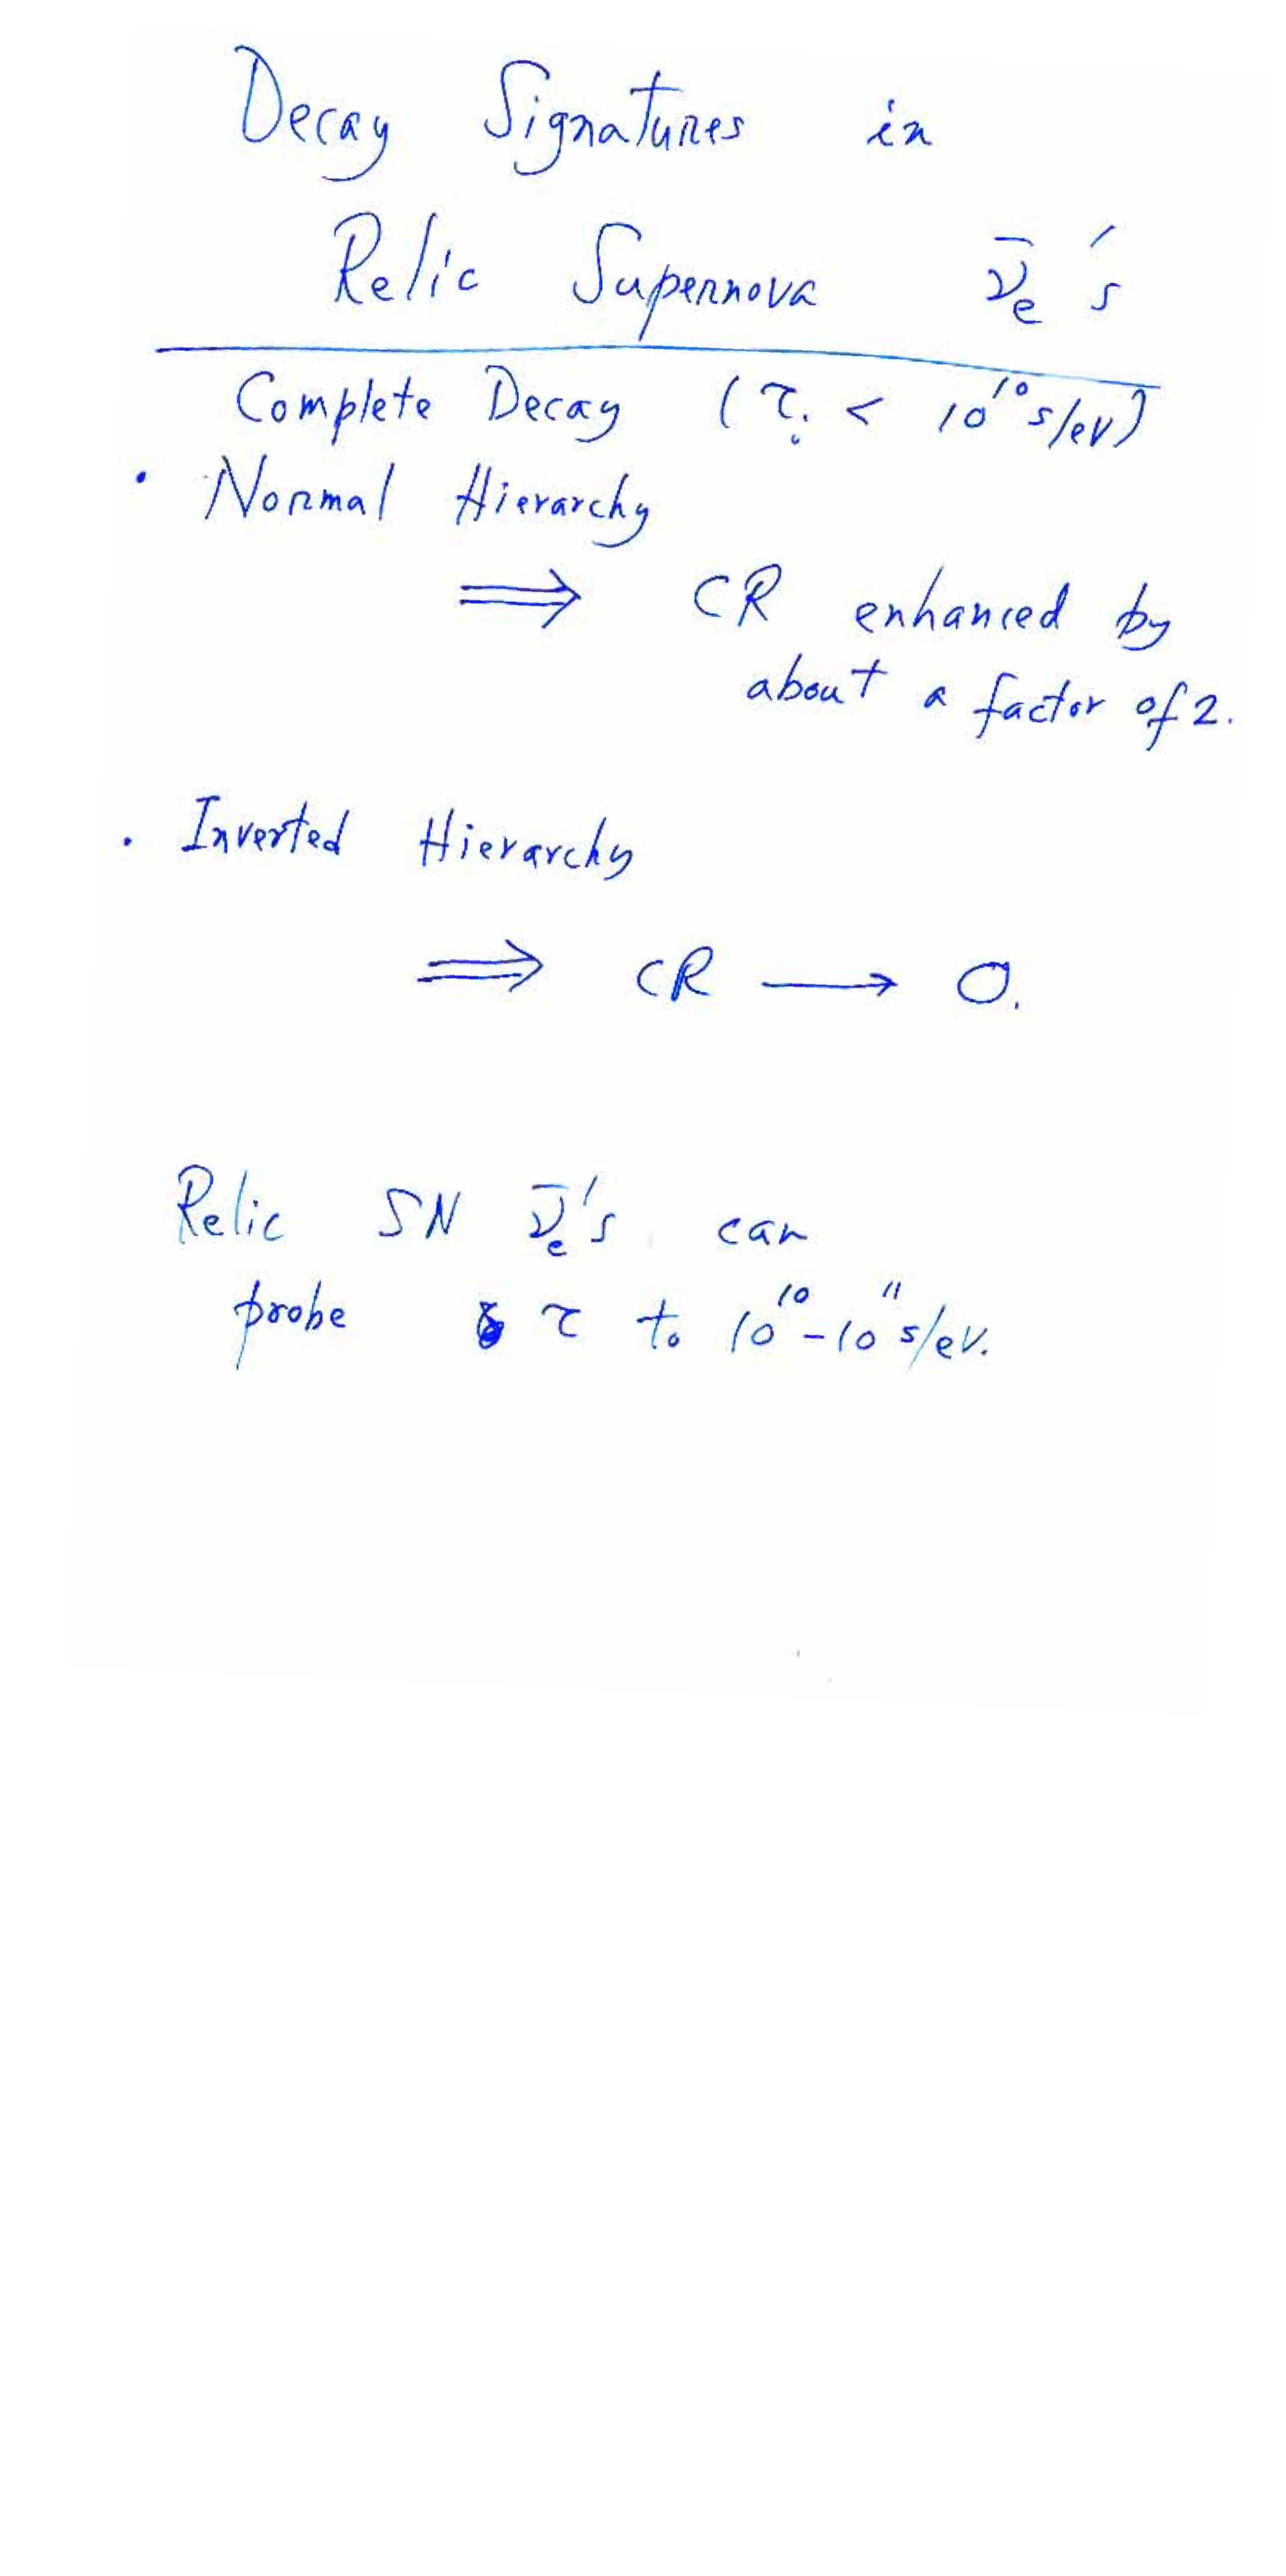 Decay Signatures in
Relic Supernova ν̄ₑ's
Complete Decay (τ. < 10¹⁰ s/eV)
• Normal Hierarchy
⟹ CR enhanced by
about a factor of 2.
• Inverted Hierarchy
⟹ CR ⟶ 0.
Relic SN ν̄ₑ's can
probe τ to 10¹⁰-10¹¹ s/eV.